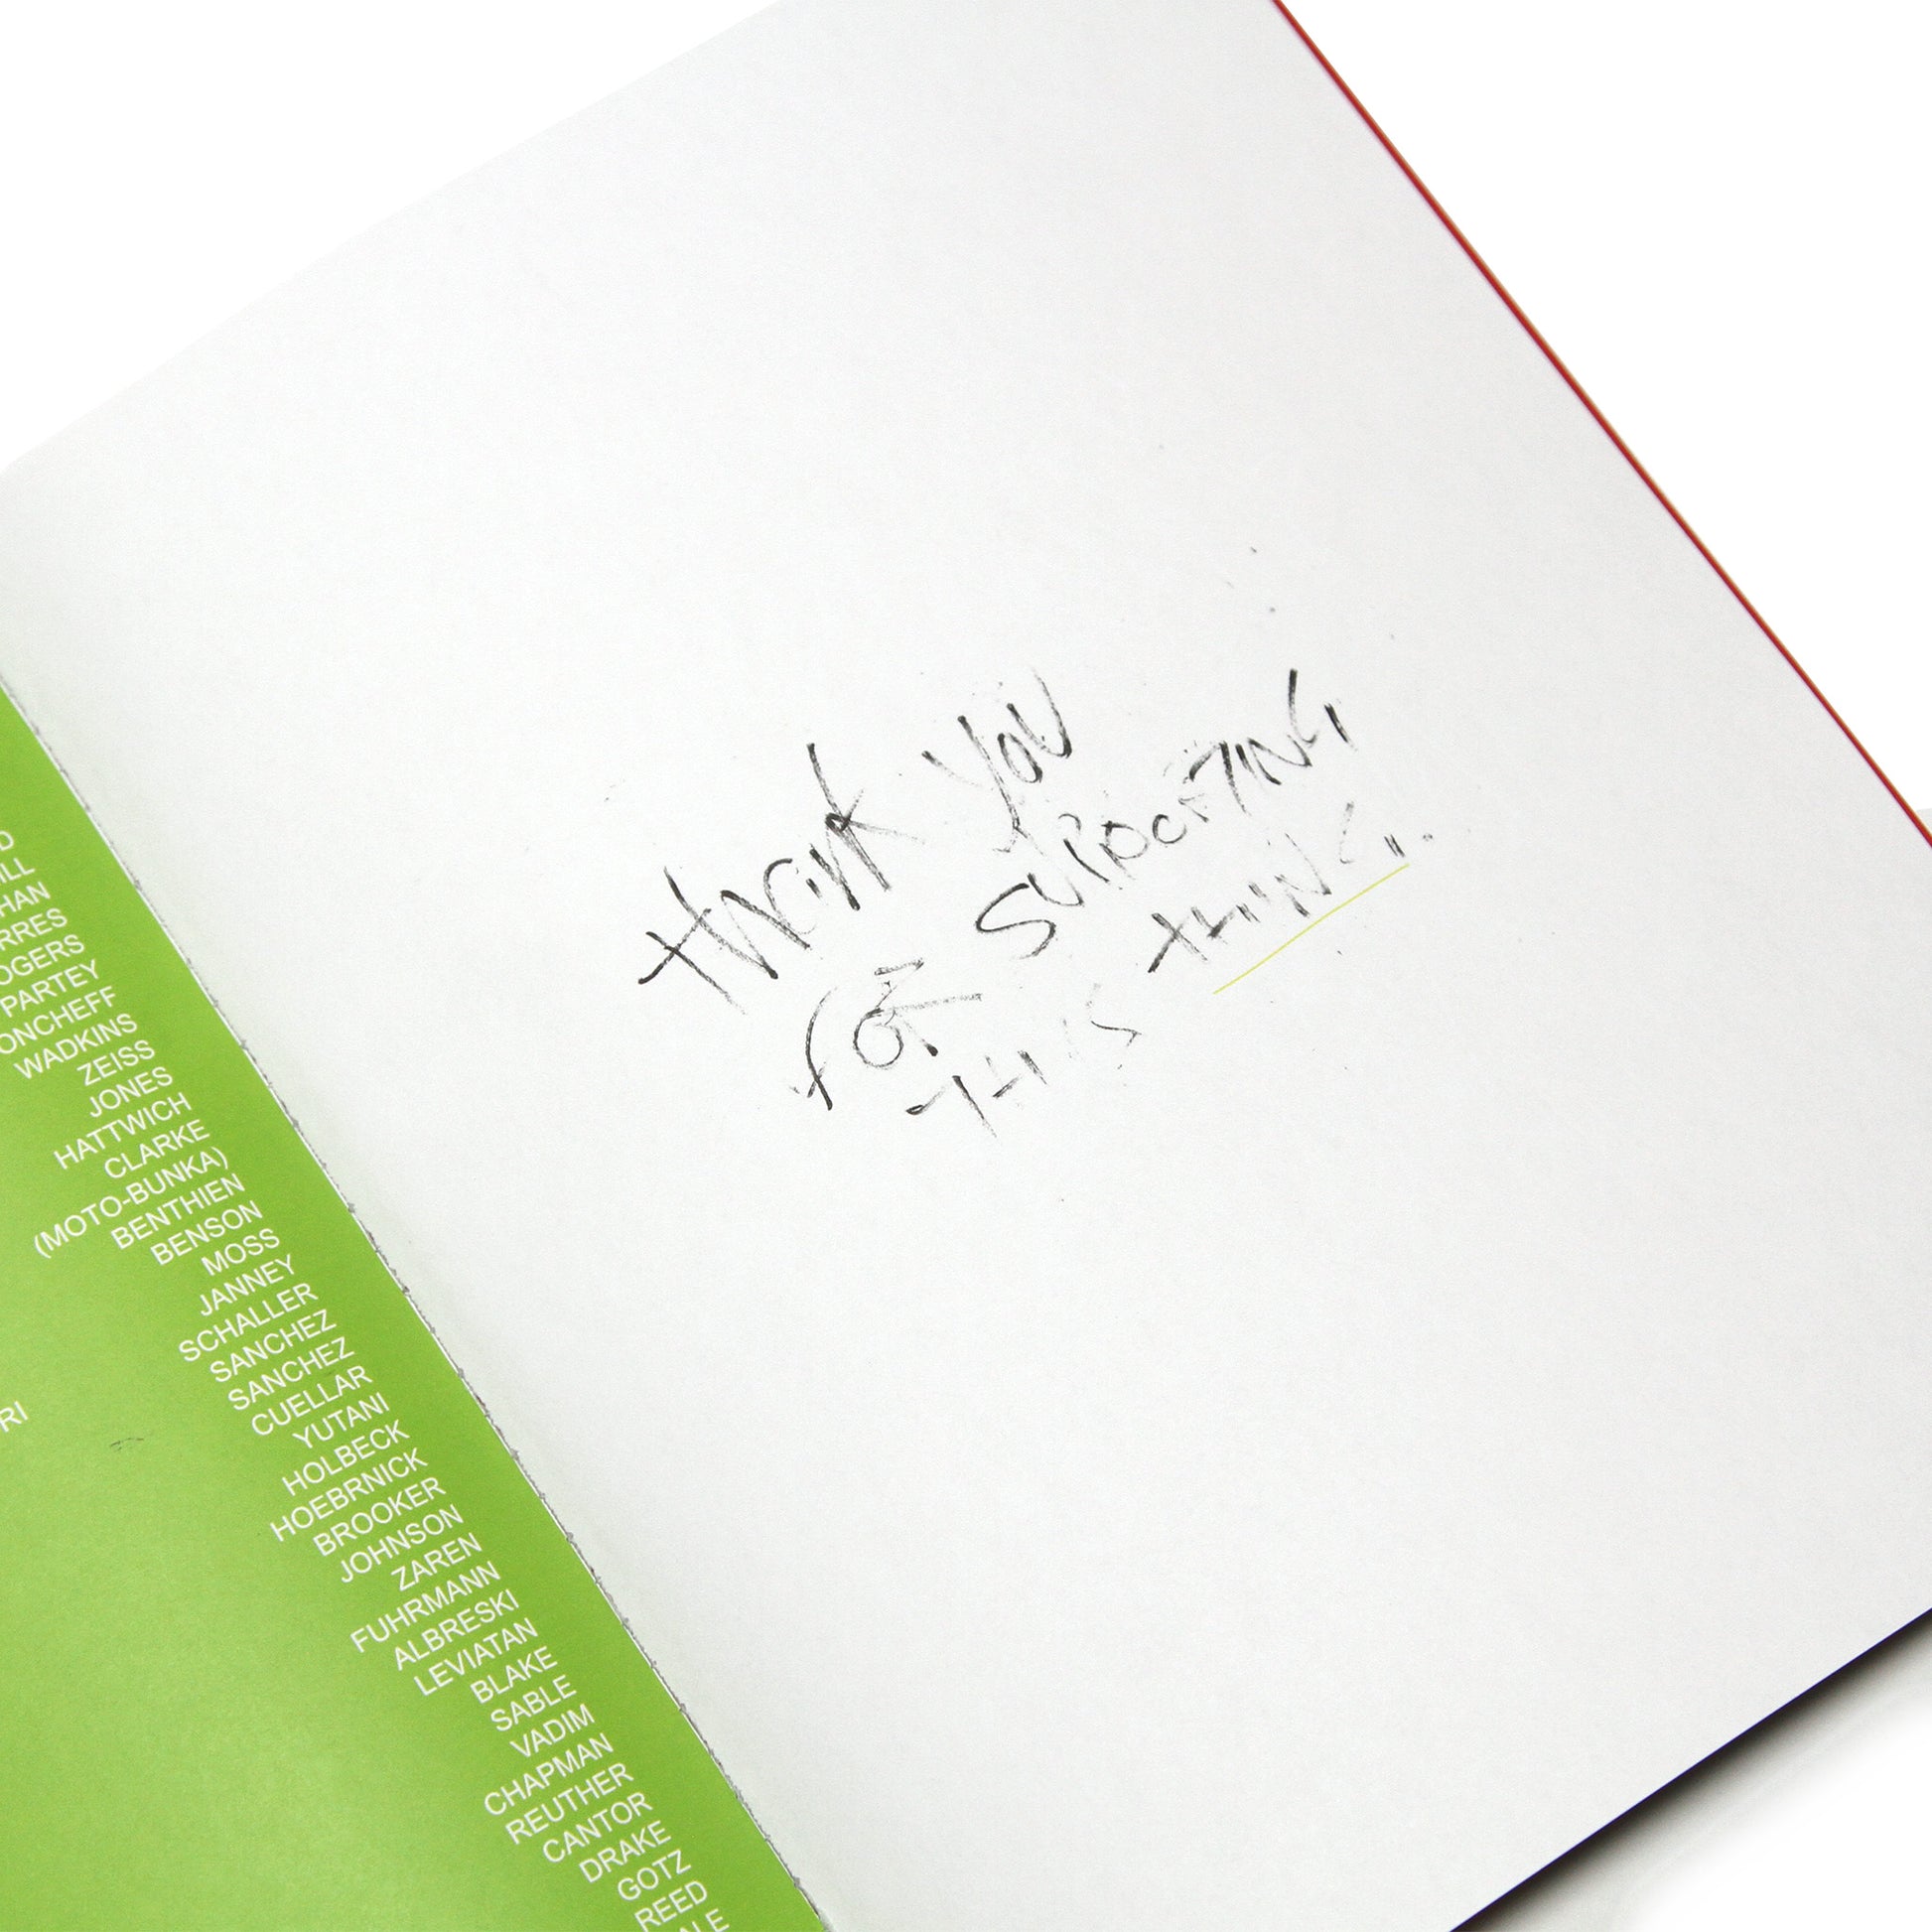 ZEISS
JONES
HATTWICH
CLARKE
(MOTO-BUNKA)
BENTHIEN
BENSON
MOSS
JANNEY
SCHALLER
SANCHEZ
SANCHEZ
CUELLAR
YUTANI
HOLBECK
HOEBRNICK
BROOKER
JOHNSON
ZAREN
FUHRMANN
ALBRESKI
LEVIATAN
BLAKE
SABLE
VADIM
CHAPMAN
REUTHER
CANTOR
DRAKE
GOTZ
REED
THANK YOU
FOR SUPPORTING
THIS THING...